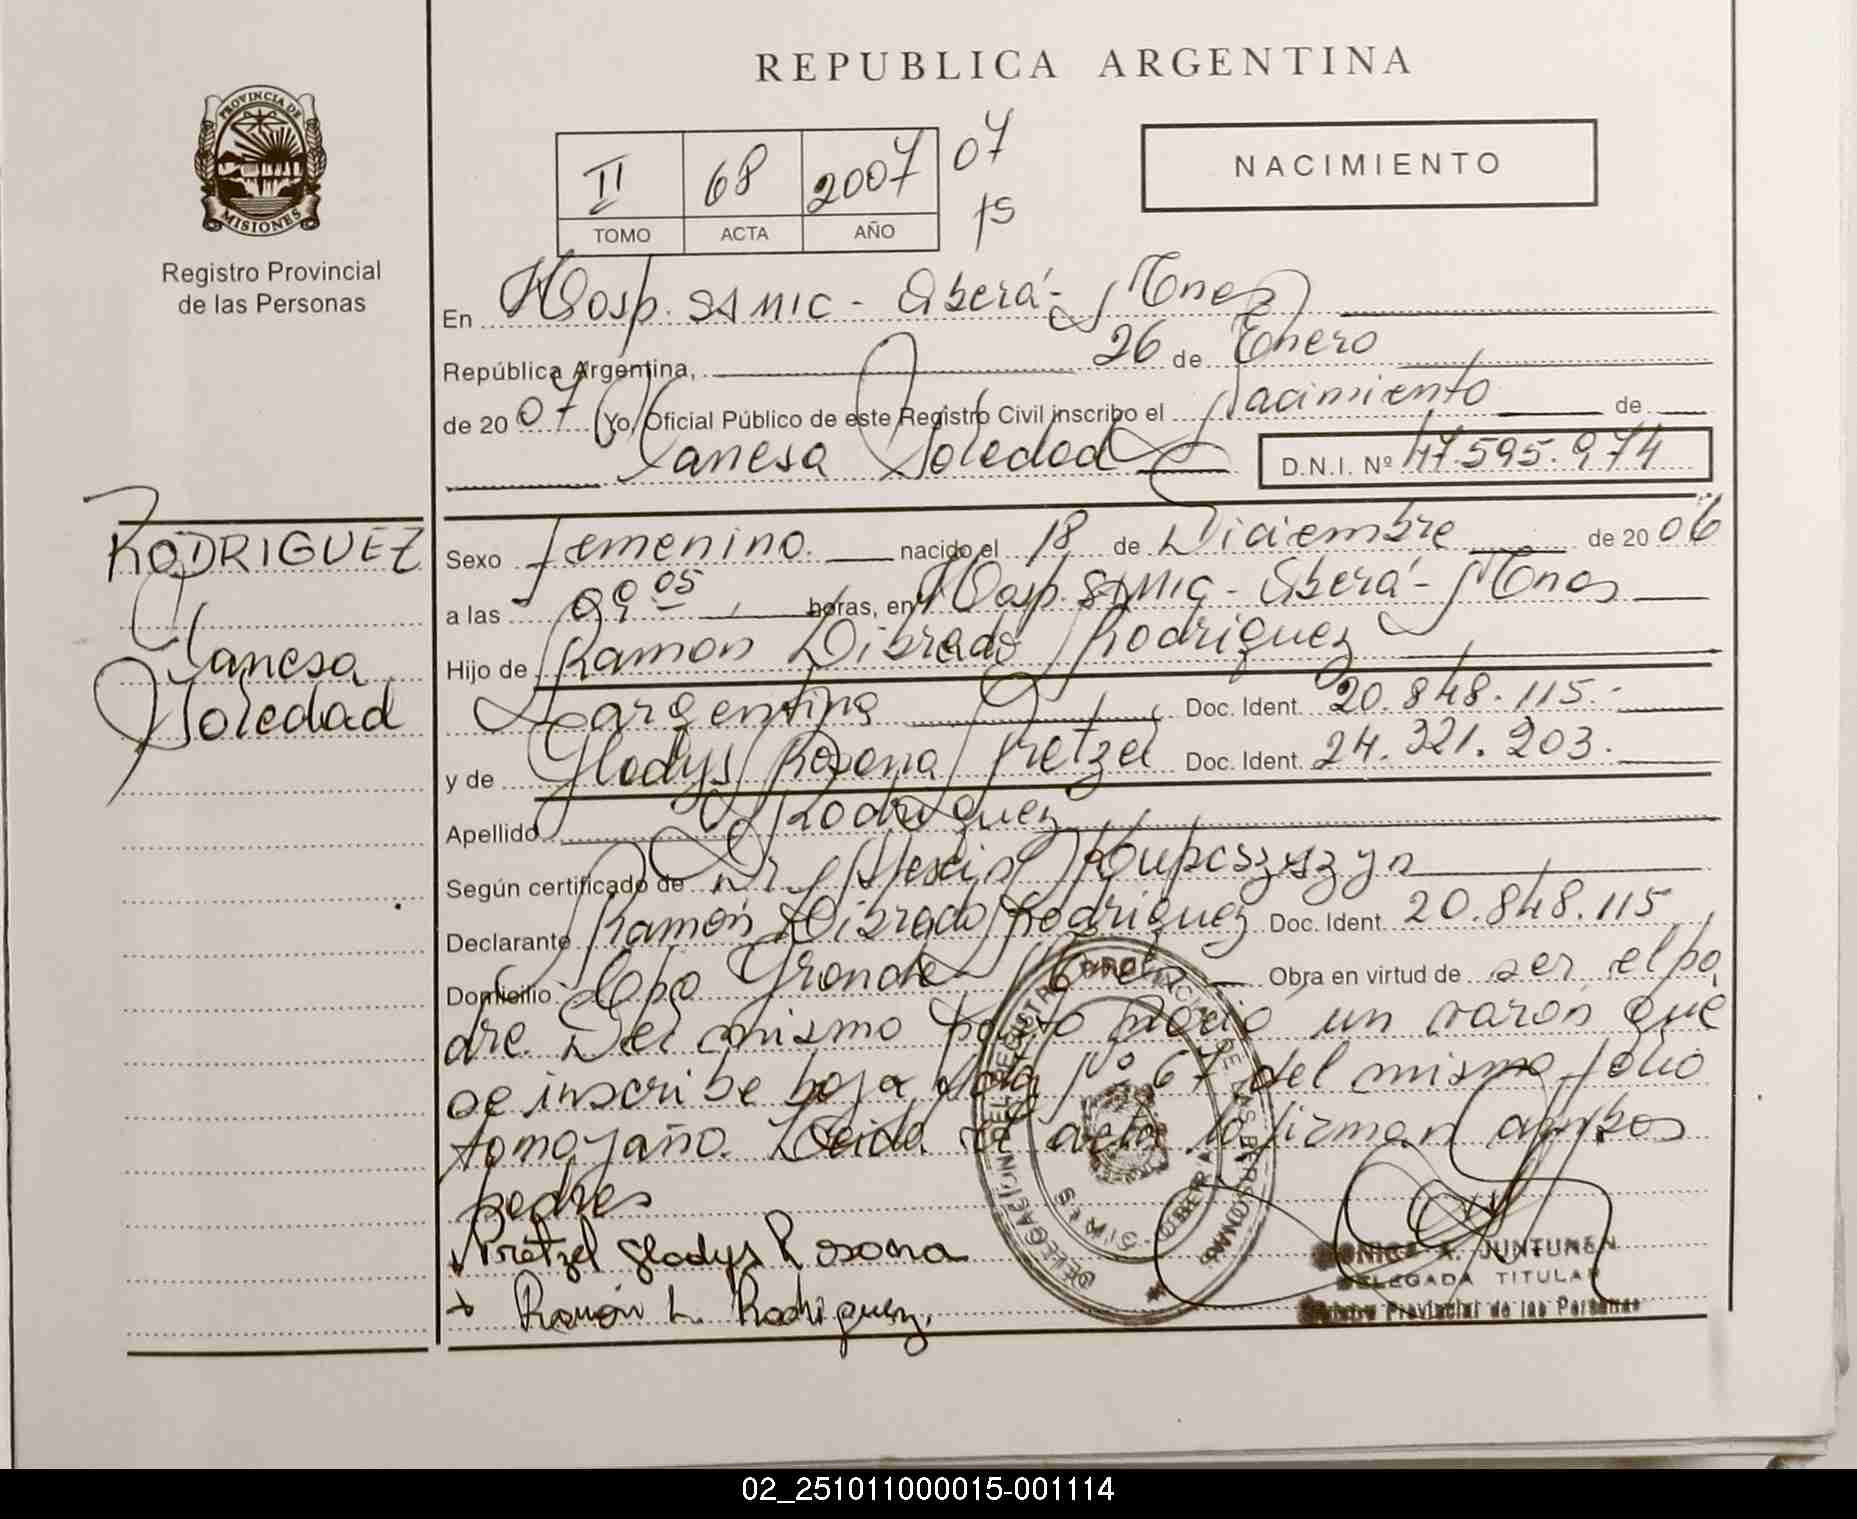 REPUBLICA ARGENTINA
PROVINCIA DE
MISIONES
Registro Provincial
de las Personas
II 68 2007 07
TOMO ACTA AÑO 15
NACIMIENTO
En Hosp. SAMIC - Oberá - Mnes
República Argentina, 26 de Enero
de 2007 Yo, Oficial Público de este Registro Civil inscribo el Nacimiento de
Vanesa Soledad D.N.I. Nº 47.595.974
RODRIGUEZ
Vanesa
Soledad
Sexo femenino. nacido el 18 de Diciembre de 2006
a las 09 05 horas, en Hosp. SAMIC - Oberá - Mnes
Hijo de Ramon Librado Rodriguez
argentina Doc. Ident. 20.848.115.-
y de Gladys Rosana Pretzel Doc. Ident. 24.321.203.
Apellido Rodriguez
Según certificado de Dr Alexis Kupcszyszyn
Declarante Ramón Librado Rodriguez Doc. Ident. 20.848.115
Domicilio Grande Obra en virtud de ser el pa
dre. Del mismo parto nació un varón que
se inscribe bajo acta Nº 67 del mismo folio
tomo y año. Leida el acta la firman ambos
padres
Pretzel Gladys Rosana
Ramón L. Rodriguez.
DELEGACION DEL REGISTRO PROVINCIAL DE LAS PERSONAS
OBERA
A. JUNTUNEN
DELEGADA TITULAR
Registro Provincial de las Personas
02_251011000015-001114